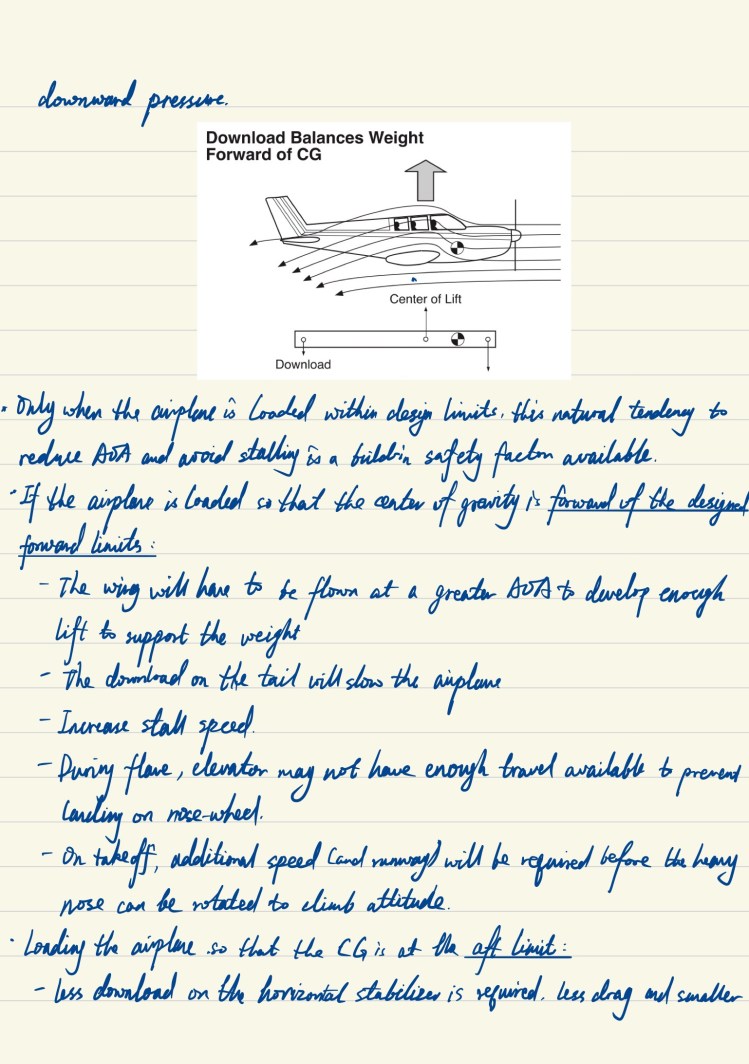 downward pressure.
Download Balances Weight
Forward of CG
Center of Lift
Download
• Only when the airplane is loaded within design limits, this natural tendency to
reduce AOA and avoid stalling is a build-in safety factor available.
• If the airplane is loaded so that the center of gravity is forward of the designed
forward limits:
- The wing will have to be flown at a greater AOA to develop enough
lift to support the weight
- The download on the tail will slow the airplane
- Increase stall speed.
- During flare, elevator may not have enough travel available to prevent
landing on nose-wheel.
- On takeoff, additional speed (and runway) will be required before the heavy
nose can be rotated to climb attitude.
• Loading the airplane so that the CG is at the aft limit:
- Less download on the horizontal stabilizer is required. less drag and smaller